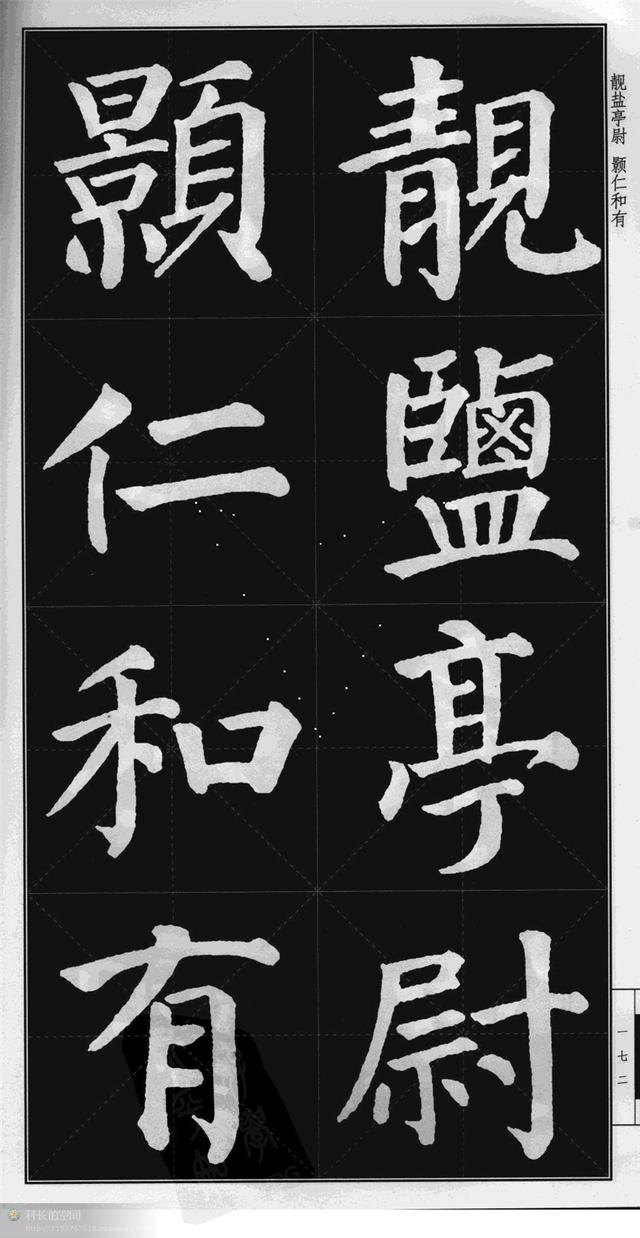 靓盐亭尉 颢仁和有
靚鹽亭尉
顥仁和有
一七二
科长的空间